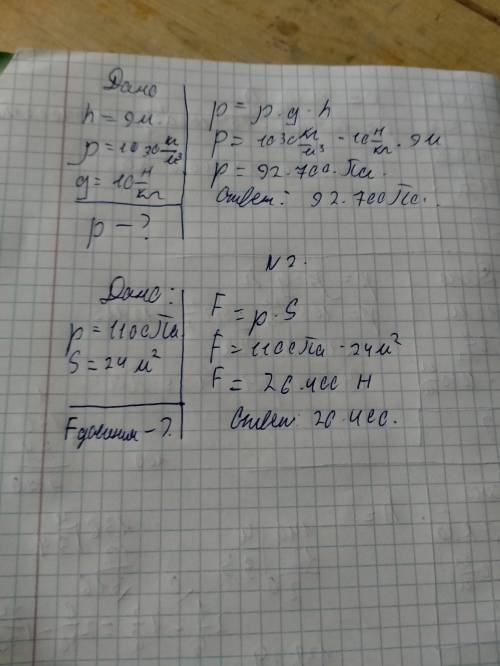 Дано
h = 9м.
ρ = 1030 кг/м³
g = 10 Н/кг
p - ?
p = ρ · g · h
p = 1030 кг/м³ · 10 Н/кг · 9м
p = 92.700 Па.
Ответ: 92.700 Па.
N 2.
Дано:
p = 1100 Па
S = 24 м²
F давления - ?
F = p · S
F = 1100 Па · 24 м²
F = 26.400 Н
Ответ 26.400.